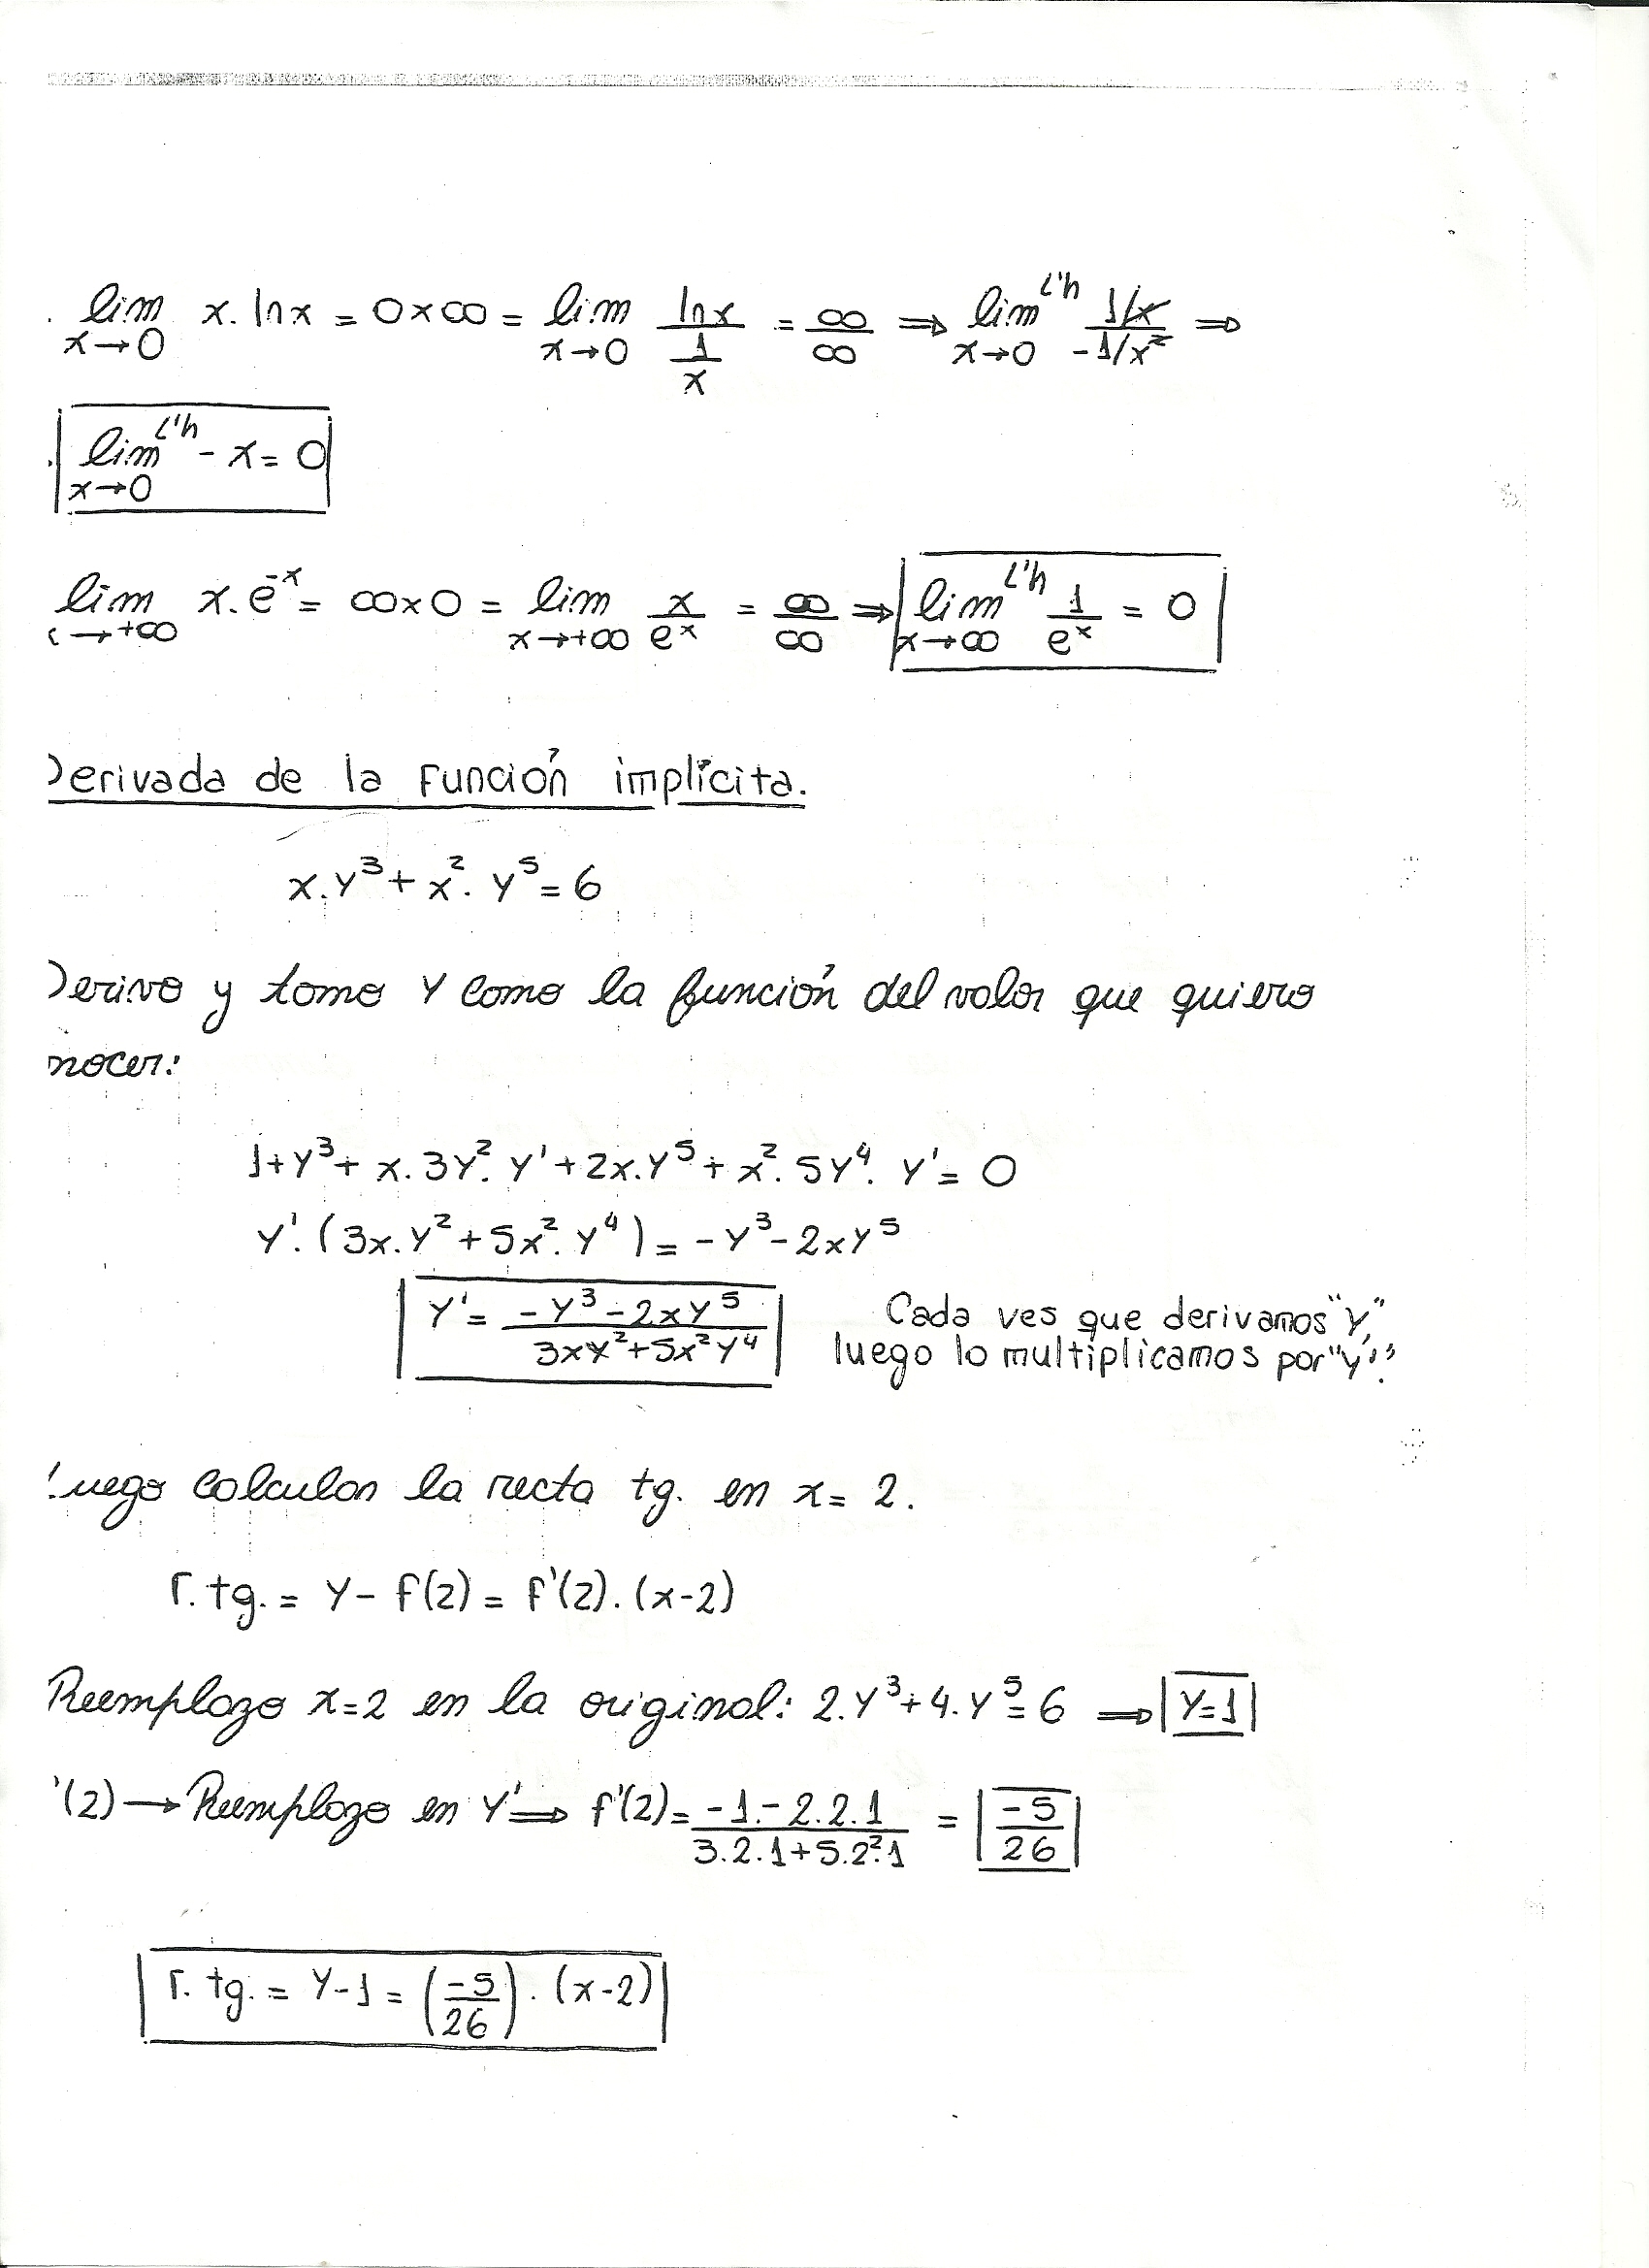 . lim x→0 x. lnx = 0×∞ = lim x→0 lnx / (1/x) = ∞/∞ ⇒ lim^L'h x→0 (1/x) / (-1/x²) ⇒
. lim^L'h x→0 - x = 0
lim x→+∞ x. e^-x = ∞×0 = lim x→+∞ x/e^x = ∞/∞ ⇒ lim^L'h x→∞ 1/e^x = 0
Derivada de la función implícita.
x.y³ + x². y⁵ = 6
Derivo y tomo Y como la función del valor que quiero
nocer:
1+y³ + x. 3y². y' + 2x.y⁵ + x². 5y⁴. y' = 0
y'. (3x.y² + 5x². y⁴) = -y³ - 2xy⁵
y' = (-y³ - 2xy⁵) / (3xy² + 5x²y⁴)
Cada ves que derivamos "y",
luego lo multiplicamos por "y'".
Luego calculan la recta tg. en x = 2.
r. tg. = y - f(2) = f'(2). (x-2)
Reemplazo x=2 en la original: 2.y³ + 4.y⁵ = 6 ⇒ y=1
'(2) → Reemplazo en y' ⇒ f'(2) = (-1.-2.2.1) / (3.2.1+5.2².1) = -5/26
r. tg. = y-1 = (-5/26) . (x-2)